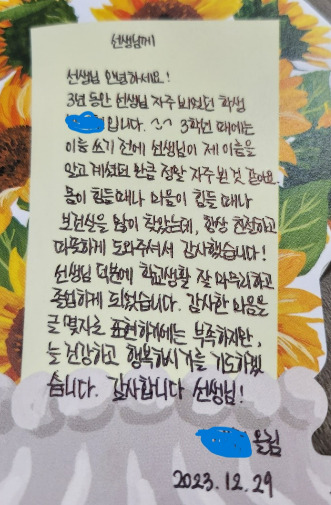 선생님께
선생님 안녕하세요!
3년 동안 선생님 자주 뵈었던 학생
입니다. ^^ 3학년 때에는
이름 쓰기 전에 선생님이 제 이름을
알고 계셨던 만큼 정말 자주 뵌 것 같아요.
몸이 힘들 때나 마음이 힘들 때나
보건실을 많이 찾았는데, 항상 친절하고
따뜻하게 도와주셔서 감사했습니다!
선생님 덕분에 학교생활 잘 마무리하고
졸업하게 되었습니다. 감사한 마음을
글 몇자로 표현하기에는 부족하지만,
늘 건강하고 행복하시기를 기도하겠
습니다. 감사합니다 선생님!
올림
2023.12.29